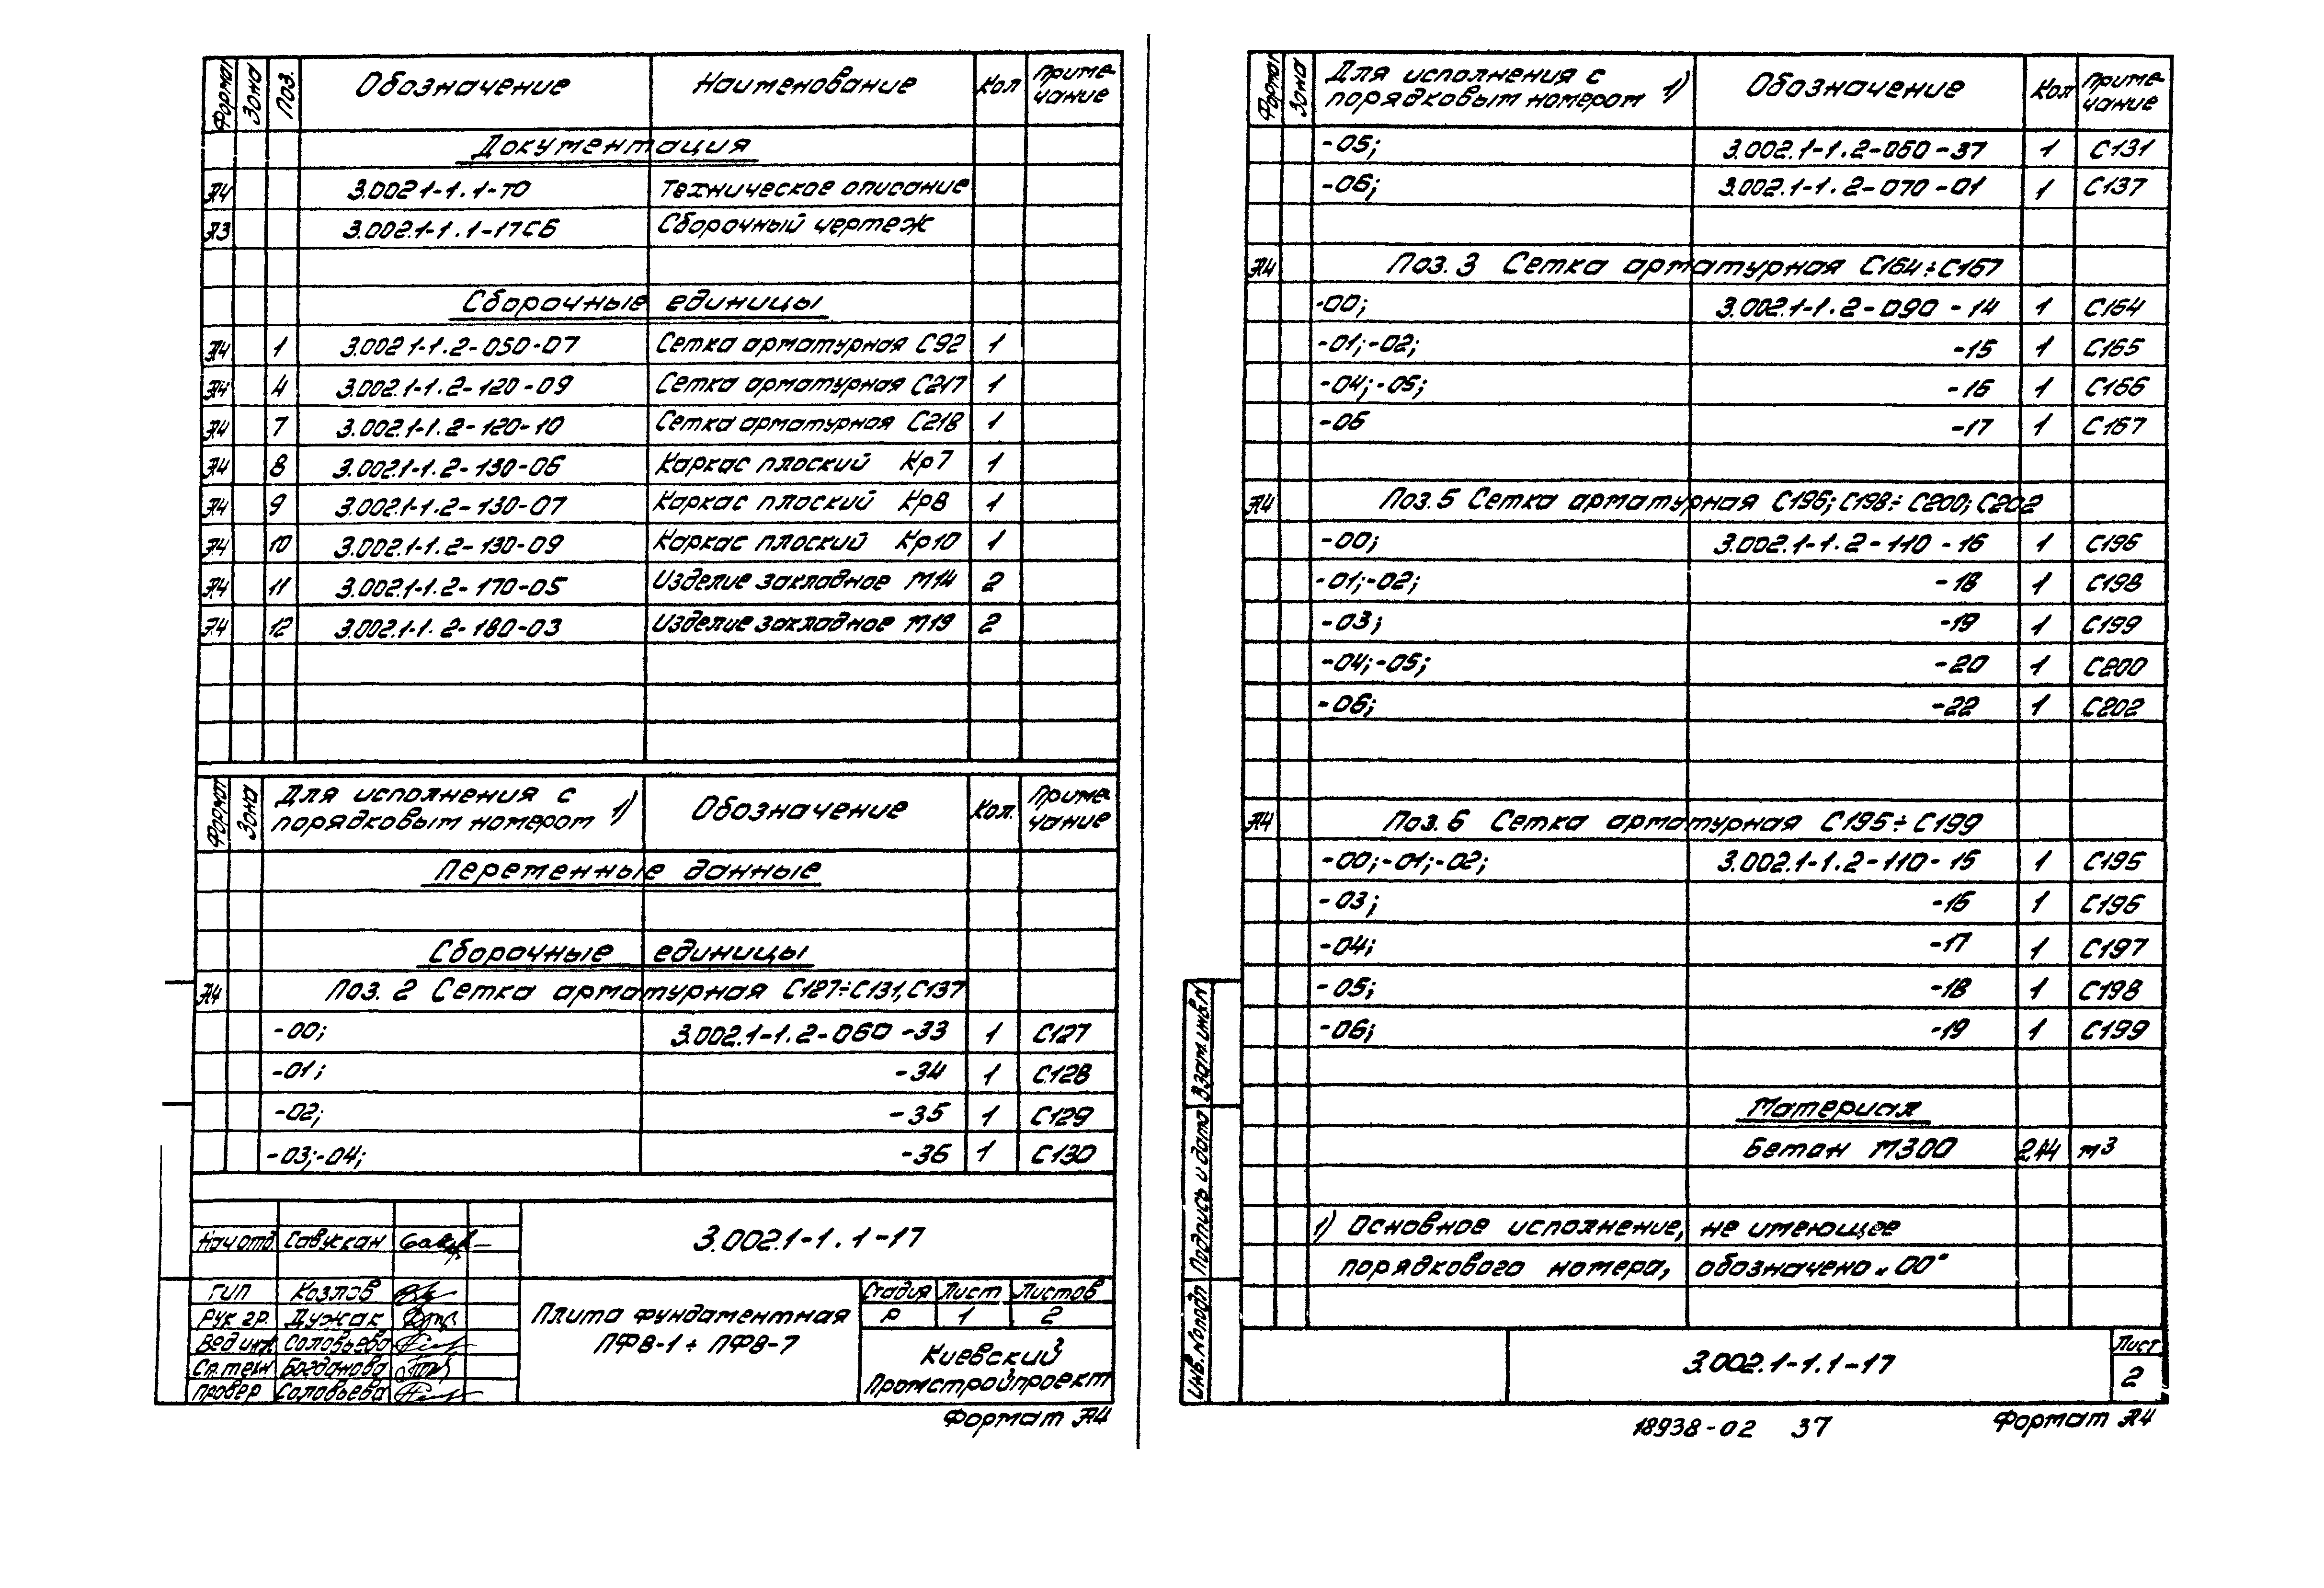 Формат Зона Поз. Обозначение Наименование Кол Приме-
чание
Документация
А4 3.002.1-1.1-ТО Техническое описание
А3 3.002.1-1.1-17СБ Сборочный чертеж
Сборочные единицы
А4 1 3.002.1-1.2-050-07 Сетка арматурная С92 1
А4 4 3.002.1-1.2-120-09 Сетка арматурная С217 1
А4 7 3.002.1-1.2-120-10 Сетка арматурная С218 1
А4 8 3.002.1-1.2-130-06 Каркас плоский Кр7 1
А4 9 3.002.1-1.2-130-07 Каркас плоский Кр8 1
А4 10 3.002.1-1.2-130-09 Каркас плоский Кр10 1
А4 11 3.002.1-1.2-170-05 Изделие закладное М14 2
А4 12 3.002.1-1.2-180-03 Изделие закладное М19 2
Формат Зона Для исполнения с
порядковым номером 1) Обозначение Кол. Приме-
чание
Переменные данные
Сборочные единицы
А4 Поз. 2 Сетка арматурная С127÷С131, С137
-00; 3.002.1-1.2-060 -33 1 С127
-01; -34 1 С128
-02; -35 1 С129
-03;-04; -36 1 С130
3.002.1-1.1-17
Нач отд Савускан
ГИП Козлов
Рук гр. Дужак
Вед инж Соловьева
Ст. техн Богданова
Провер Соловьева
Плита фундаментная
ПФ8-1 ÷ ПФ8-7
Стадия Лист Листов
Р 1 2
Киевский
Промстройпроект
Формат А4
Формат Зона Для исполнения с
порядковым номером 1) Обозначение Кол Приме-
чание
-05; 3.002.1-1.2-060-37 1 С131
-06; 3.002.1-1.2-070-01 1 С137
А4 Поз. 3 Сетка арматурная С164÷С167
-00; 3.002.1-1.2-090-14 1 С164
-01;-02; -15 1 С165
-04;-05; -16 1 С166
-06 -17 1 С167
А4 Поз. 5 Сетка арматурная С196; С198÷С200; С202
-00; 3.002.1-1.2-110-16 1 С196
-01;-02; -18 1 С198
-03; -19 1 С199
-04;-05; -20 1 С200
-06; -22 1 С202
А4 Поз. 6 Сетка арматурная С195÷С199
-00;-01;-02; 3.002.1-1.2-110-15 1 С195
-03; -16 1 С196
-04; -17 1 С197
-05; -18 1 С198
-06; -19 1 С199
Материал
Бетон М300 2,44 м3
1) Основное исполнение, не имеющее
порядкового номера, обозначено „00"
Взам.инв.N
Подпись и дата
Инв.Nподл
3.002.1-1.1-17
Лист
2
18938-02 37
Формат А4